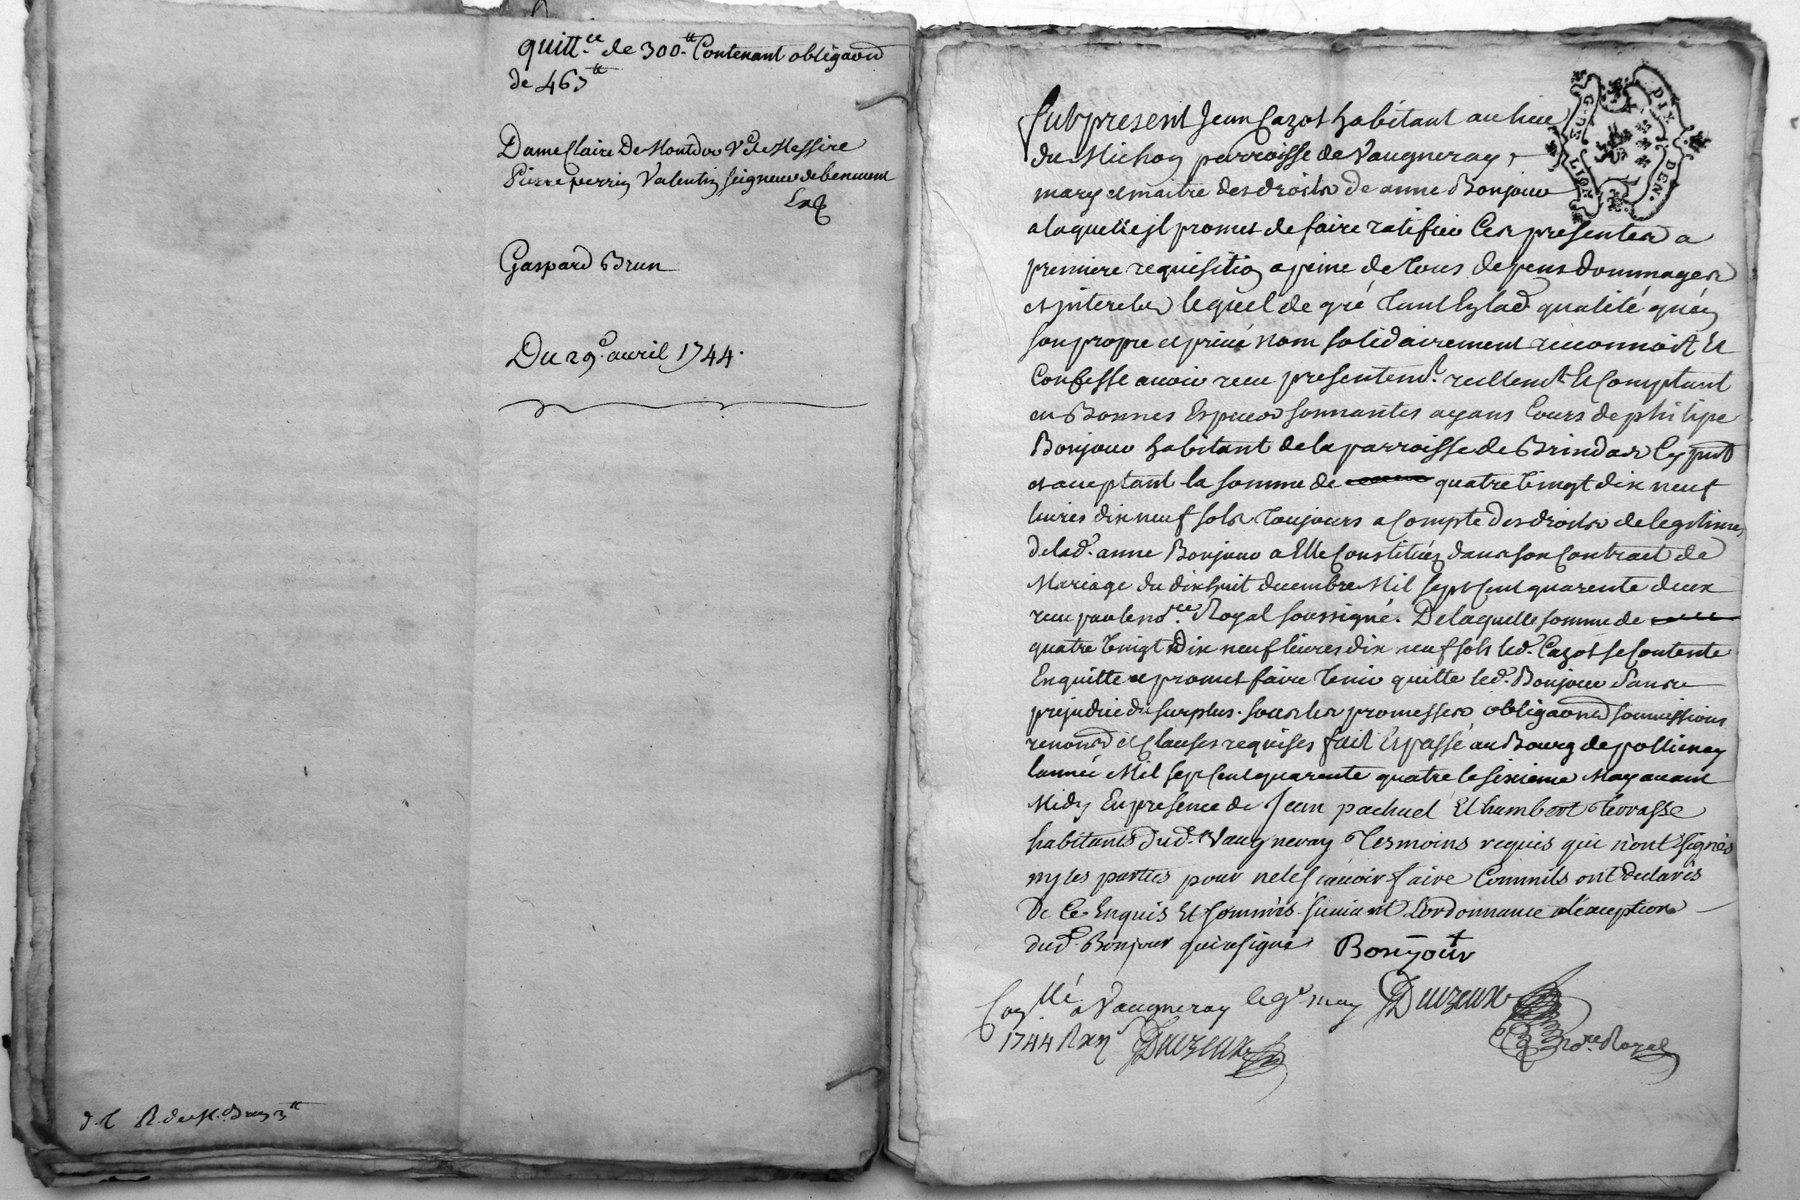 quitt.ce de 300.tt Contenant obligaõn
de 463tt
Dame Claire De Montdor Ve de Messire
Pierre perrin Valentin seigneur de
Gaspard Brun
Du 29e. avril 1744.
d. C R. de M. Brun 3tt
G. DE LION DIX DEN.
fut present Jean Cazot habitant au lieu
du Michon parroisse de Vaugneray,
mary et maitre des droits de anne Bonjour
a laquelle jl promet de faire ratifier Ces presentes a
premiere requisition a peine de tous depens dommages
et jnterets lequel de gré tant Ey lad. qualité qu'en
son propre et privé nom solidairement reconnoit Et
Confesse avoir receu presentemt. reellemt. Et Comptant
en Bonnes Especes sonnantes ayans Cours de philipe
Bonjour habitant de la parroisse de Brindas Cy pnt
et acceptant la somme de quatre vingt dix neuf
livres dix neuf sols toujours a Compte des droits de legitime
de lad. anne Bonjour a Elle Constitués dans son Contract de
Mariage du dixhuit decembre Mil sept Cent quarente deux
receu par le nore. Royal soussigné. De laquelle somme de
quatre vingt Dix neuf livres dix neuf sols led. Cazot se Contente
En quitte et promet faire tenir quitte led. Bonjour sans
prejudice du surplus. sous les promesses obligaõns soumissions
renonõns et Clauses requises fait Et passé au Bourg de pollienay
lannée Mil sept Cent quarente quatre le sixieme May avant
Midy En presence de Jean pachuel Et humbert Terrasse
habitants dud. Vaugneray Tesmoins requis qui n'ont signés
ny les parties pour ne le sçavoir faire Comm'ils ont declarés
De Ce Enquis Et sommés suivant L'ordonnance a l'exception
dud. Bonjour qui a signé Bonjour
Conllé a Vaugneray le 9e may
1744
nore. Royal